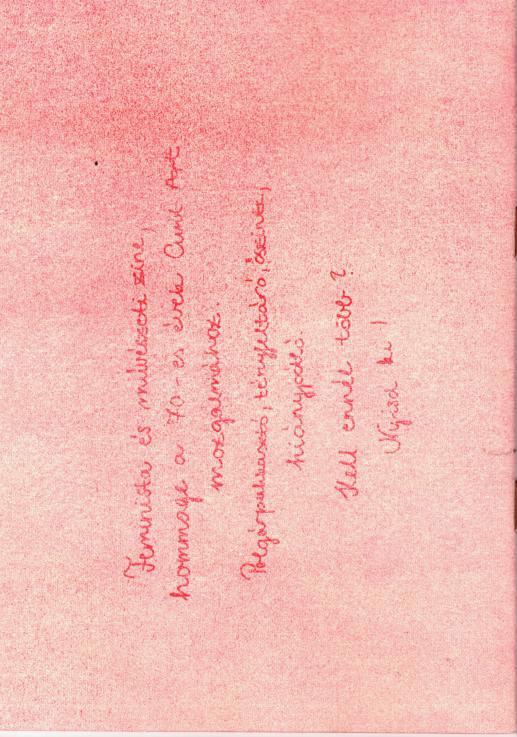 Feminista és művészeti zine,
hommage a 70-es évek Cunt Art
mozgalmához.
Polgárpukkasztó, tényfeltáró, őszinte,
hiánypótló.
Kell ennél több?
Nyisd ki!